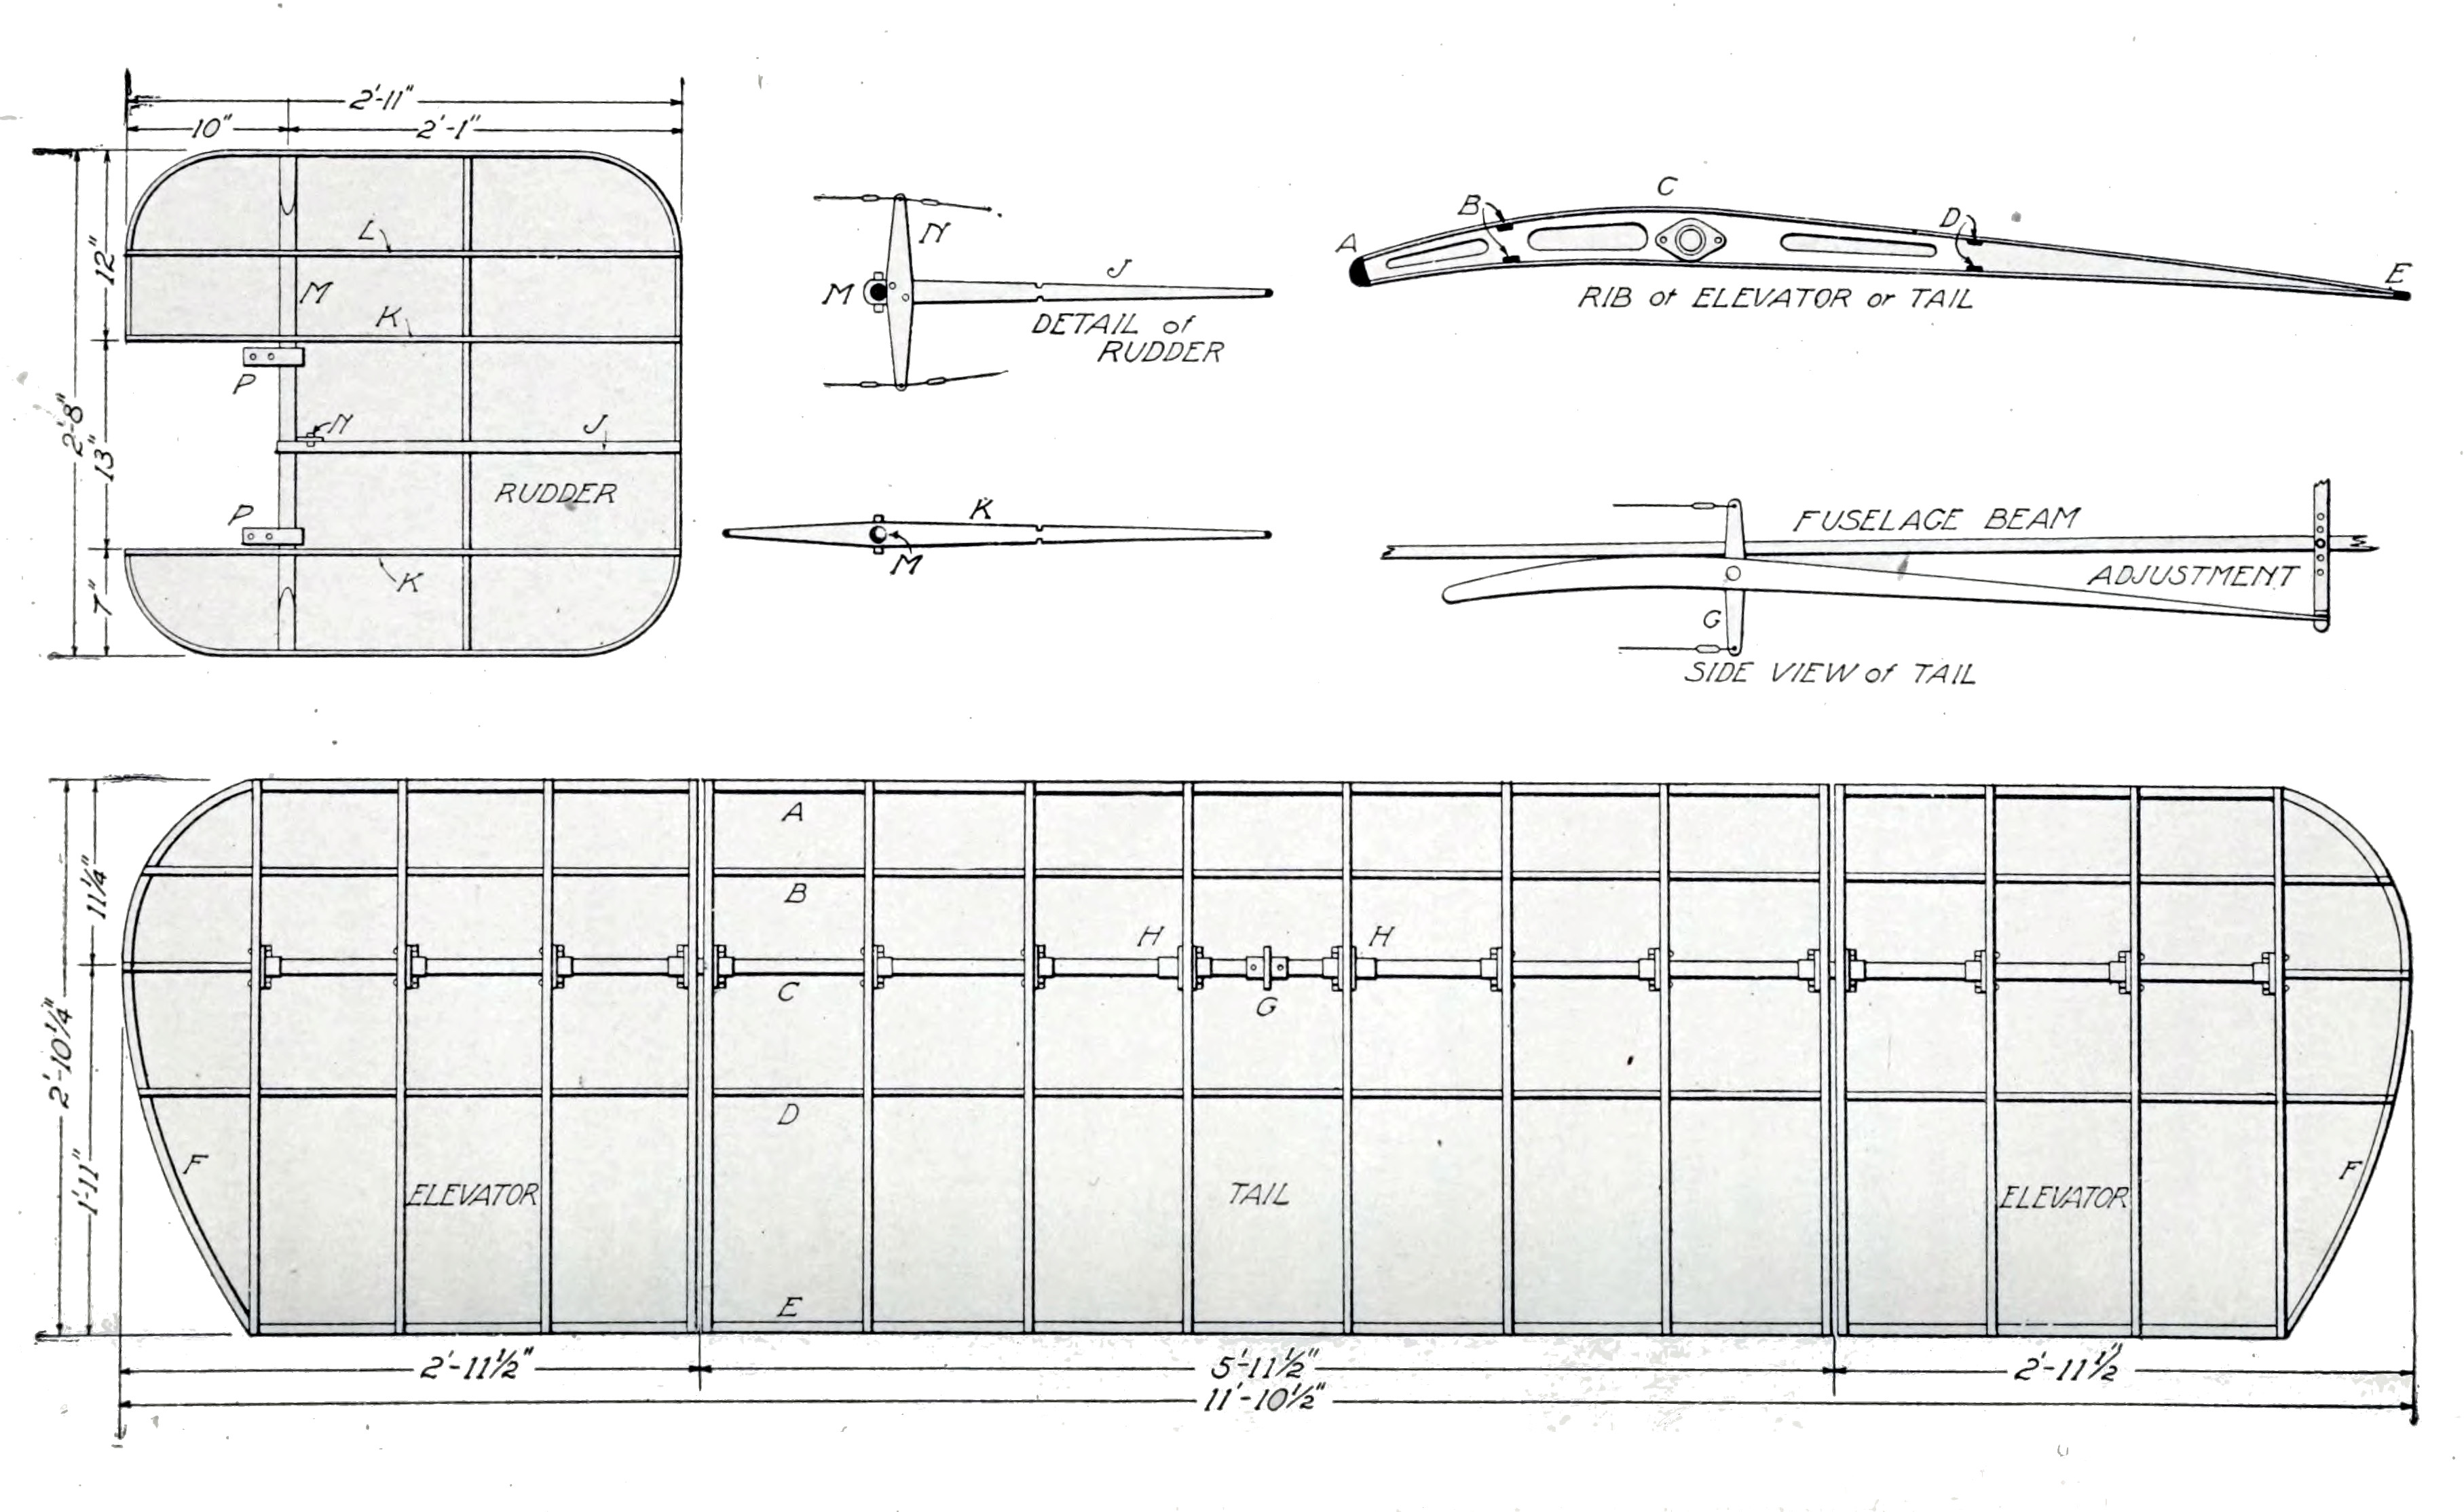 2'-11"
10" 2'-1"
L
M
K
P
N
J
RUDDER
P
K
12"
13"
7"
2'-8"
N
M J
DETAIL of
RUDDER
K
M
A B C D E
RIB of ELEVATOR or TAIL
FUSELAGE BEAM
ADJUSTMENT
G
SIDE VIEW of TAIL
11¼"
2'-10¼"
1'-11"
A
B
H H
C G
D
F ELEVATOR TAIL ELEVATOR F
E
2'-11½" 5'-11½" 2'-11½
11'-10½"